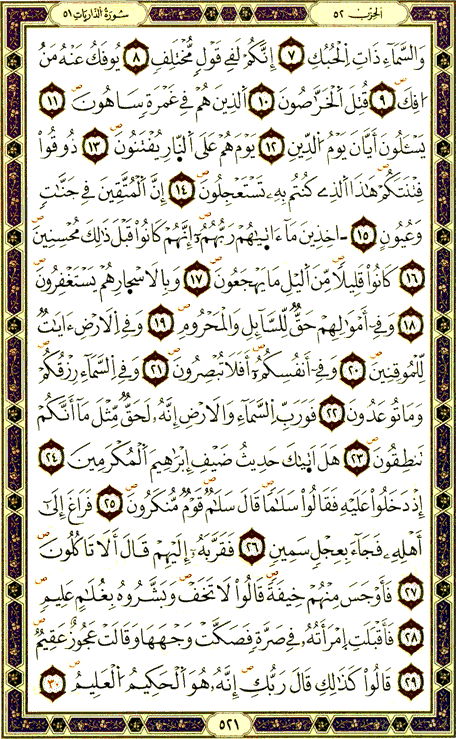 الحِزْب ٥٢ سُورَةُ الذَّارِيَاتِ ٥١
وَالسَّمَآءِ ذَاتِ اِلْحُبُكِ ٧ إِنَّكُمْ لَفِے قَوْلٍ مُّخْتَلِفٍ ٨ يُوفَكُ عَنْهُ مَنُ
ا۟فِكَ ٩ قُتِلَ اَلْخَرَّٰصُونَ ١٠ اَلذِينَ هُمْ فِے غَمْرَةٍ سَاهُونَ ١١
يَسْـَٔلُونَ أَيَّانَ يَوْمُ اُلدِّينِ ١٢ يَوْمَ هُمْ عَلَى اَلنَّارِ يُفْتَنُونَ ١٣ ذُوقُواْ
فِتْنَتَكُمْ هَٰذَا اَلذِے كُنتُم بِهِۦ تَسْتَعْجِلُونَ ١٤ إِنَّ اَلْمُتَّقِينَ فِے جَنَّٰتٍ
وَعُيُونٍ ١٥ ـاخِذِينَ مَآ ءَاتَيٰهُمْ رَبُّهُمُۥٓ إِنَّهُمْ كَانُواْ قَبْلَ ذَٰلِكَ مُحْسِنِينَ
١٦ كَانُواْ قَلِيلاً مِّنَ اَليْلِ مَا يَهْجَعُونَ ١٧ وَبِالَاسْحِارِ هُمْ يَسْتَغْفِرُونَ
١٨ وَفِےٓ أَمْوَٰلِهِمْ حَقٌّ لِّلسَّآئِلِ وَالْمَحْرُومِ ١٩ وَفِے اِلَارْضِ ءَايَٰتٌ
لِّلْمُوقِنِينَ ٢٠ وَفِےٓ أَنفُسِكُمُۥٓ أَفَلَا تُبْصِرُونَ ٢١ وَفِے اِلسَّمَآءِ رِزْقُكُمْ
وَمَا تُوعَدُونَ ٢٢ فَوَرَبِّ اِلسَّمَآءِ وَالَارْضِ إِنَّهُۥ لَحَقٌّ مِّثْلَ مَآ أَنَّكُمْ
تَنطِقُونَ ٢٣ هَلَ اَتَيٰكَ حَدِيثُ ضَيْفِ إِبْرَٰهِيمَ اَلْمُكْرَمِينَ ٢٤
إِذْ دَخَلُواْ عَلَيْهِ فَقَالُواْ سَلَٰماً قَالَ سَلَٰمٌ قَوْمٌ مُّنكَرُونَ ٢٥ فَرَاغَ إِلَىٰٓ
أَهْلِهِۦ فَجَآءَ بِعِجْلٍ سَمِينٍ ٢٦ فَقَرَّبَهُۥٓ إِلَيْهِمْ قَالَ أَلَا تَاكُلُونَ
٢٧ فَأَوْجَسَ مِنْهُمْ خِيفَةً قَالُواْ لَا تَخَفْ وَبَشَّرُوهُ بِغُلَٰمٍ عَلِيمٍ
٢٨ فَأَقْبَلَتِ اِمْرَأَتُهُۥ فِے صَرَّةٍ فَصَكَّتْ وَجْهَهَا وَقَالَتْ عَجُوزٌ عَقِيمٌ
٢٩ قَالُواْ كَذَٰلِكِ قَالَ رَبُّكِ إِنَّهُۥ هُوَ اَلْحَكِيمُ اُلْعَلِيمُ ٣٠
٥٢١